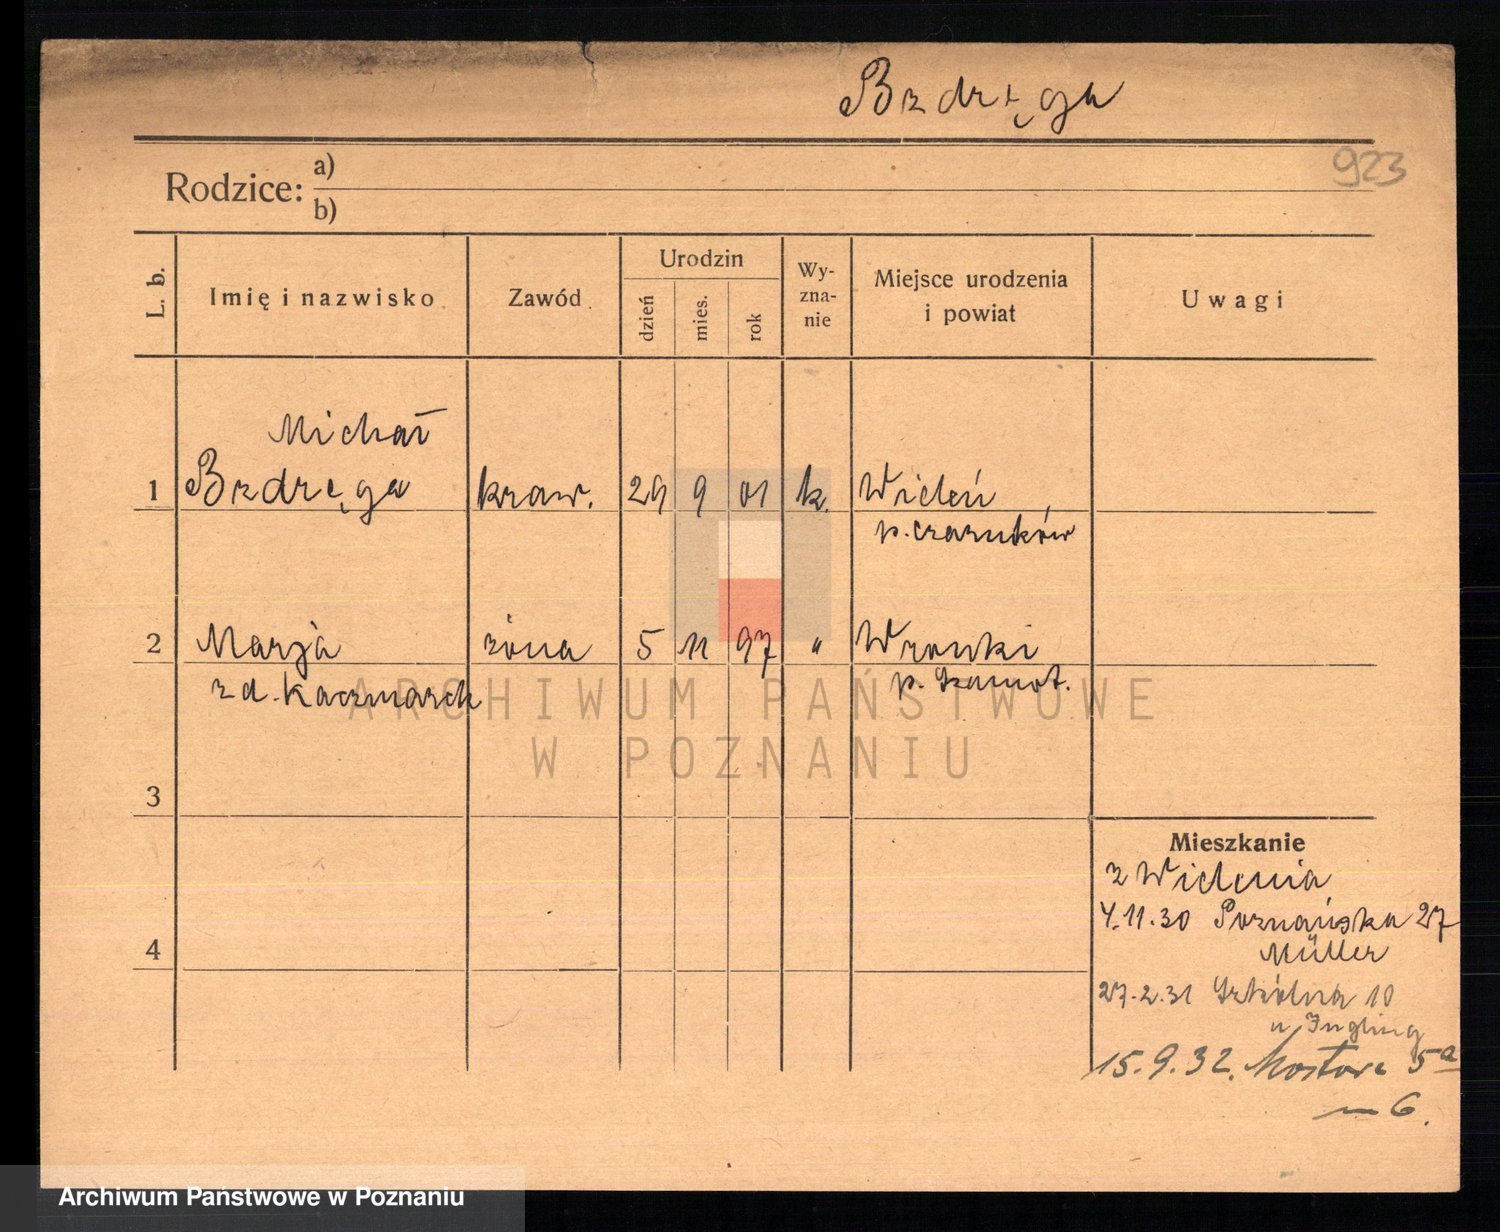 Bzdręga
923
Rodzice: a)
b)
L. b.
Imię i nazwisko
Zawód
Urodzin
dzień
mies.
rok
Wy-
zna-
nie
Miejsce urodzenia
i powiat
Uwagi
Michał
1 Bzdręga kraw. 29 9 01 k. Wieleń
p. Czarnków
2 Marja żona 5 11 97 " Wronki
zd. Kaczmarek p. Szamot.
ARCHIWUM PAŃSTWOWE
W POZNANIU
3
4
Mieszkanie
z Wielenia
4.11.30 Poznańska 27
Müller
27.2.31 Szkólna 10
u Jngling
15.9.32. Mostowa 5a
m 6.
Archiwum Państwowe w Poznaniu